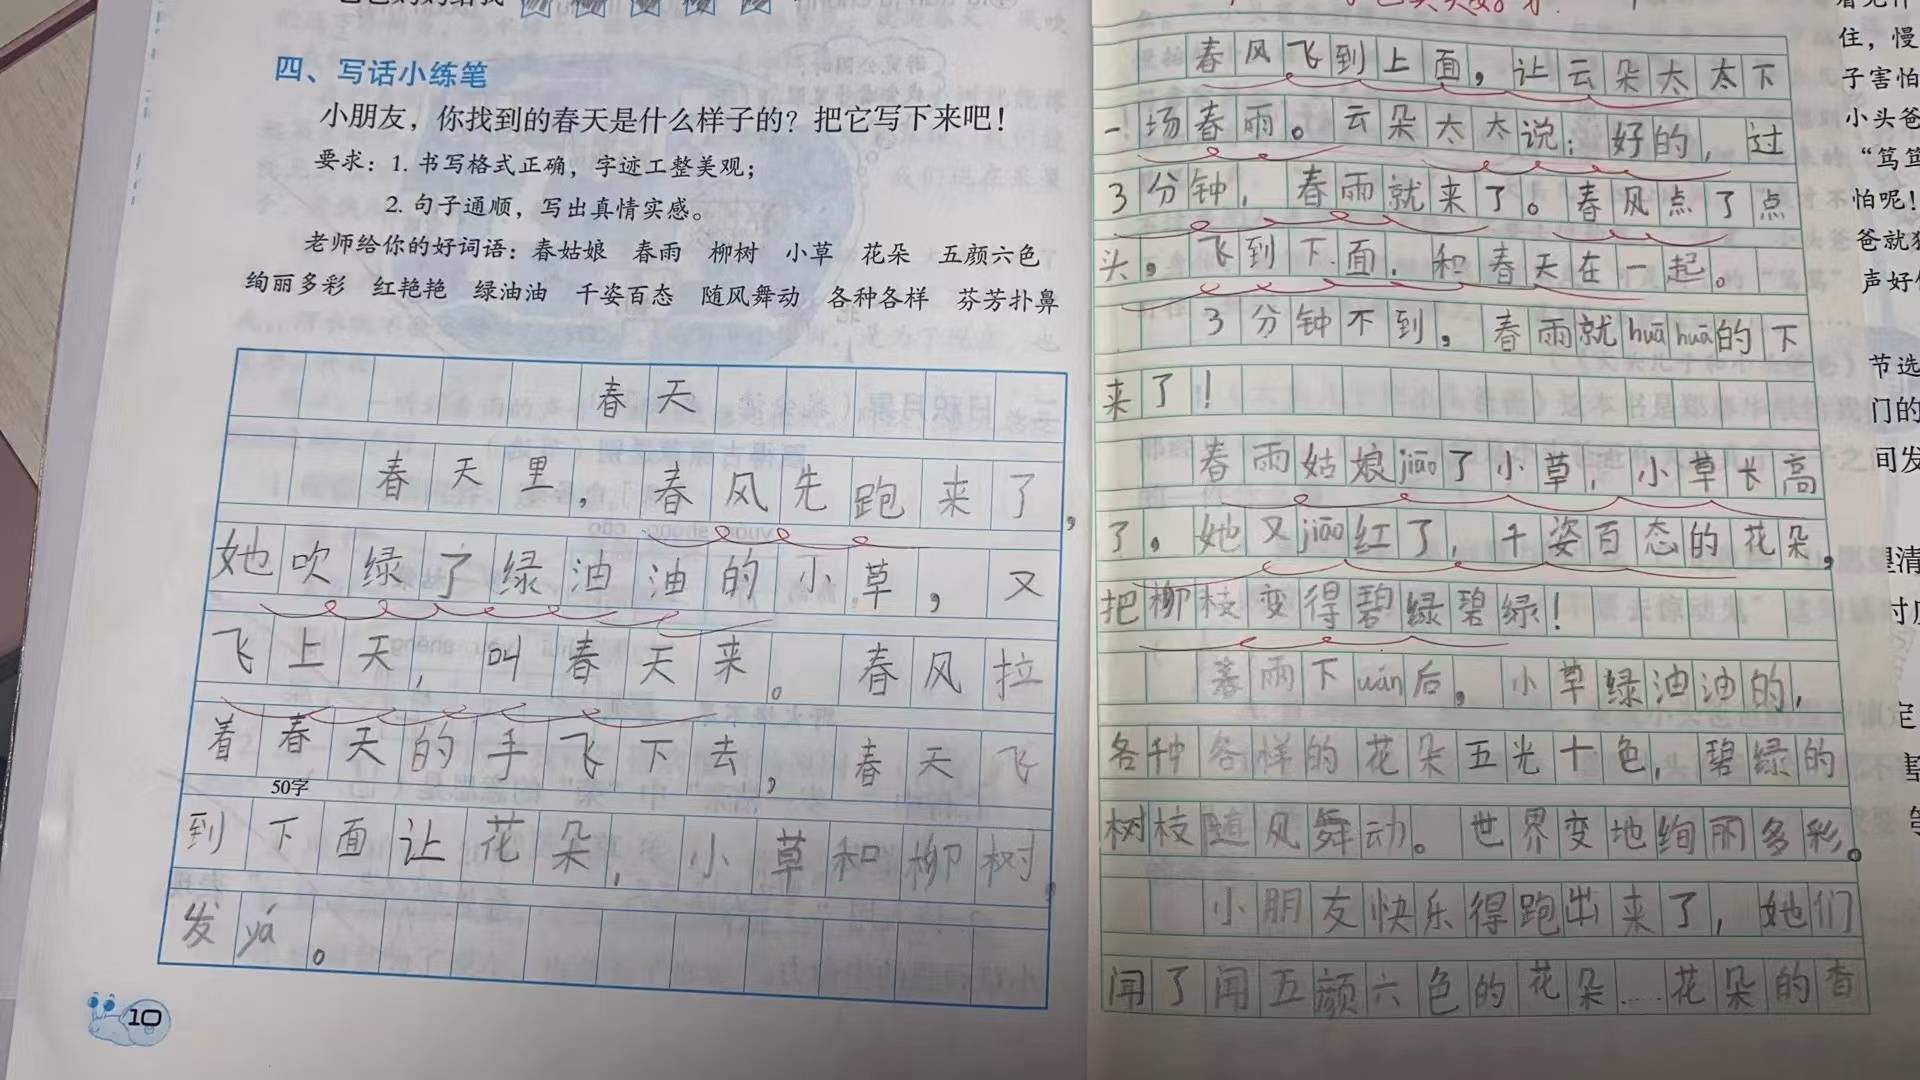 四、写话小练笔
小朋友，你找到的春天是什么样子的？把它写下来吧！
要求：1. 书写格式正确，字迹工整美观；
2. 句子通顺，写出真情实感。
老师给你的好词语：春姑娘 春雨 柳树 小草 花朵 五颜六色
绚丽多彩 红艳艳 绿油油 千姿百态 随风舞动 各种各样 芬芳扑鼻
春天
春天里，春风先跑来了，
她吹绿了绿油油的小草，又
飞上天，叫春天来。春风拉
着春天的手飞下去，春天飞
50字
到下面让花朵，小草和柳树，
发yá。
10
春风飞到上面，让云朵太太下
一场春雨。云朵太太说：好的，过
3分钟，春雨就来了。春风点了点
头，飞到下面，和春天在一起。
3分钟不到，春雨就huāhuā的下
来了！
春雨姑娘jiāo了小草，小草长高
了。她又jiāo红了，千姿百态的花朵，
把柳枝变得碧绿碧绿！
春雨下uán后，小草绿油油的，
各种各样的花朵五光十色，碧绿的
树枝随风舞动。世界变地绚丽多彩。
小朋友快乐得跑出来了，她们
闻了闻五颜六色的花朵……花朵的香
住，慢
子害怕
小头爸
怕呢！
爸就犹
声好
节选
门的
间发
望清